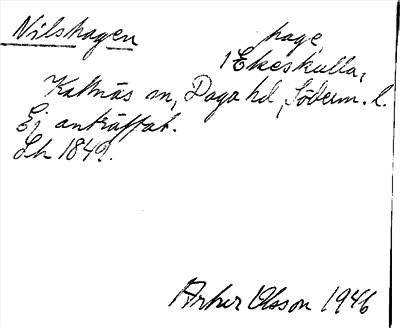 Nilshagen
page,
i Ekeskulla,
Kattnäs sn, Daga hd, Söderm. l.
Ej anträffat.
Lh 1849.
Arthur Olsson 1946